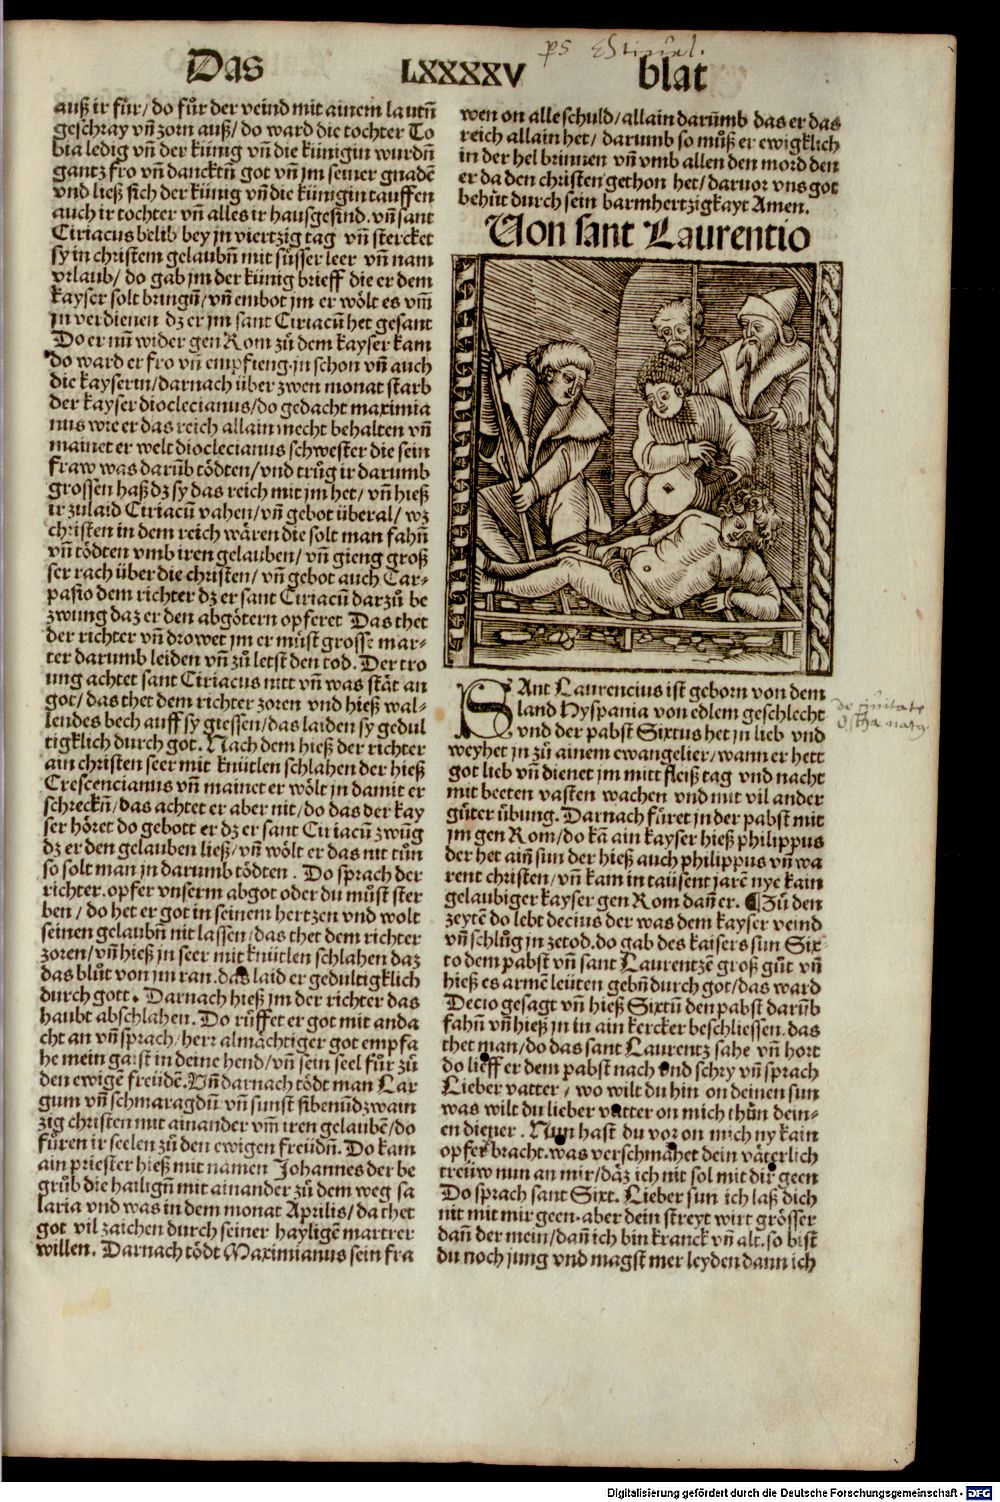 Das LXXXXV blat
auß ir fůr/ do fůr der veind mit ainem lautñ
geschray vñ zorn auß/ do ward die tochter To
bia ledig vñ der künig vñ die künigin wurdñ
gantz fro vñ dancktñ got vñ jm seiner gnadẽ
vnd ließ sich der künig vñ die künigin tauffen
auch ir tochter vñ alles ir haußgesind. vñ sant
Ciriacus belib bey jn viertzig tag vñ stercket
sy in christem gelaubñ mit süsser leer vñ nam
vrlaub/ do gab jm der künig brieff die er dem
kayser solt bringñ/ vñ embot jm er wölt es vm̃
jn verdienen dz er jm sant Ciriacũ het gesant
Do er nũ wider gen Rom zů dem kayser kam
do ward er fro vñ empfieng jn schon vñ auch
die kayserin/ darnach über zwen monat starb
der kayser dioclecianus/ do gedacht maximia
nus wie er das reich allain mecht behalten vñ
mainet er welt dioclecianus schwester die sein
fraw was darũb tödten/ vnd trůg ir darumb
grossen haß dz sy das reich mit jm het/ vñ hieß
ir zulaid Ciriacũ vahen/ vñ gebot überal/ wz
christen in dem reich wären die solt man fahñ
vñ tödten vmb iren gelauben/ vñ gieng groß
ser rach über die christen/ vñ gebot auch Car⸗
pasio dem richter dz er sant Ciriacũ darzů be
zwung daz er den abgötern opferet Das thet
der richter vñ drowet jm er můst grosse mar⸗
ter darumb leiden vñ zů letst den tod. Der tro
ung achtet sant Ciriacus nitt vñ was stät an
got/ das thet dem richter zoren vnd hieß wal⸗
lendes bech auff sy giessen/ das laiden sy gedul
tigklich durch got. Nach dem hieß der richter
ain christen seer mit knütlen schlahen der hieß
Crescencianus vñ mainet er wölt jn damit er
schreckñ/ das achtet er aber nit/ do das der kay
ser höret do gebott er dz er sant Ciriacũ zwũg
dz er den gelauben ließ/ vñ wölt er das nit tůn
so solt man jn darumb tödten. Do sprach der
richter. opfer vnserm abgot oder du můst ster
ben/ do het er got in seinem hertzen vnd wolt
seinen gelaubñ nit lassen/ das thet dem richter
zoren/ vñ hieß jn seer mit knütlen schlahen daz
das blůt von jm ran. das laid er gedultigklich
durch gott. Darnach hieß jm der richter das
haubt abschlahen. Do růffet er got mit anda
cht an vñ sprach/ herr almächtiger got empfa
he mein gaist in deine hend/ vñ sein seel fůr zů
den ewigẽ freüdẽ. Vñ darnach tödt man Lar
gum vñ schmaragdũ vñ sunst sibenũdzwain
zig christen mit ainander vm̃ iren gelaubẽ/ do
fůren ir seelen zů den ewigen freüdñ. Do kam
ain priester hieß mit namen Johannes der be
grůb die hailigñ mit ainander zů dem weg sa
laria vnd was in dem monat Aprilis/ da thet
got vil zaichen durch seiner hayligẽ martrer
willen. Darnach tödt Maximianus sein fra
wen on alle schuld/ allain darũmb das er das
reich allain het/ darumb so můß er ewigklich
in der hel brinnen vñ vmb allen den mord den
er da den christen gethon het/ daruor vns got
behüt durch sein barmhertzigkayt Amen.
Von sant Laurentio
SAnt Laurencius ist geborn von dem
land Hyspania von edlem geschlecht
vnd der pabst Sixtus het jn lieb vnd
weyhet jn zů ainem ewangelier/ wann er hett
got lieb vñ dienet jm mitt fleiß tag vnd nacht
mit beeten vasten wachen vnd mit vil ander
gůter übung. Darnach fůret jn der pabst mit
jm gen Rom/ do kã ain kayser hieß philippus
der het aiñ sun der hieß auch philippus vñ wa
rent christen/ vñ kam in taüsent jarẽ nye kain
gelaubiger kayser gen Rom dañ er. ¶Zů den
zeytẽ do lebt decius der was dem kayser veind
vñ schlůg jn ze tod. do gab des kaisers sun Six⸗
to dem pabst vñ sant Laurentzẽ groß gůt vñ
hieß es armẽ leüten gebñ durch got/ das ward
Decio gesagt vñ hieß Sixtũ den pabst darũb
fahñ vñ hieß jn in ain kercker beschliessen. das
thet man/ do das sant Laurentz sahe vñ hort
do lieff er dem pabst nach vnd schry vñ sprach
Lieber vatter/ wo wilt du hin on deinen sun
was wilt du lieber vatter on mich thůn dein⸗
en diener. Nun hast du vor on mich ny kain
opfer bracht. was verschmahet dein väterlich
treüw nun an mir/ däz ich nit sol mit dir geen
Do sprach sant Sixt. Lieber sun ich laß dich
nit mit mir geen. aber dein streyt wirt grösser
dañ der mein/ dañ ich bin kranck vñ alt. so bist
du noch jung vnd magst mer leyden dann ich
Digitalisierung gefördert durch die Deutsche Forschungsgemeinschaft - DFG